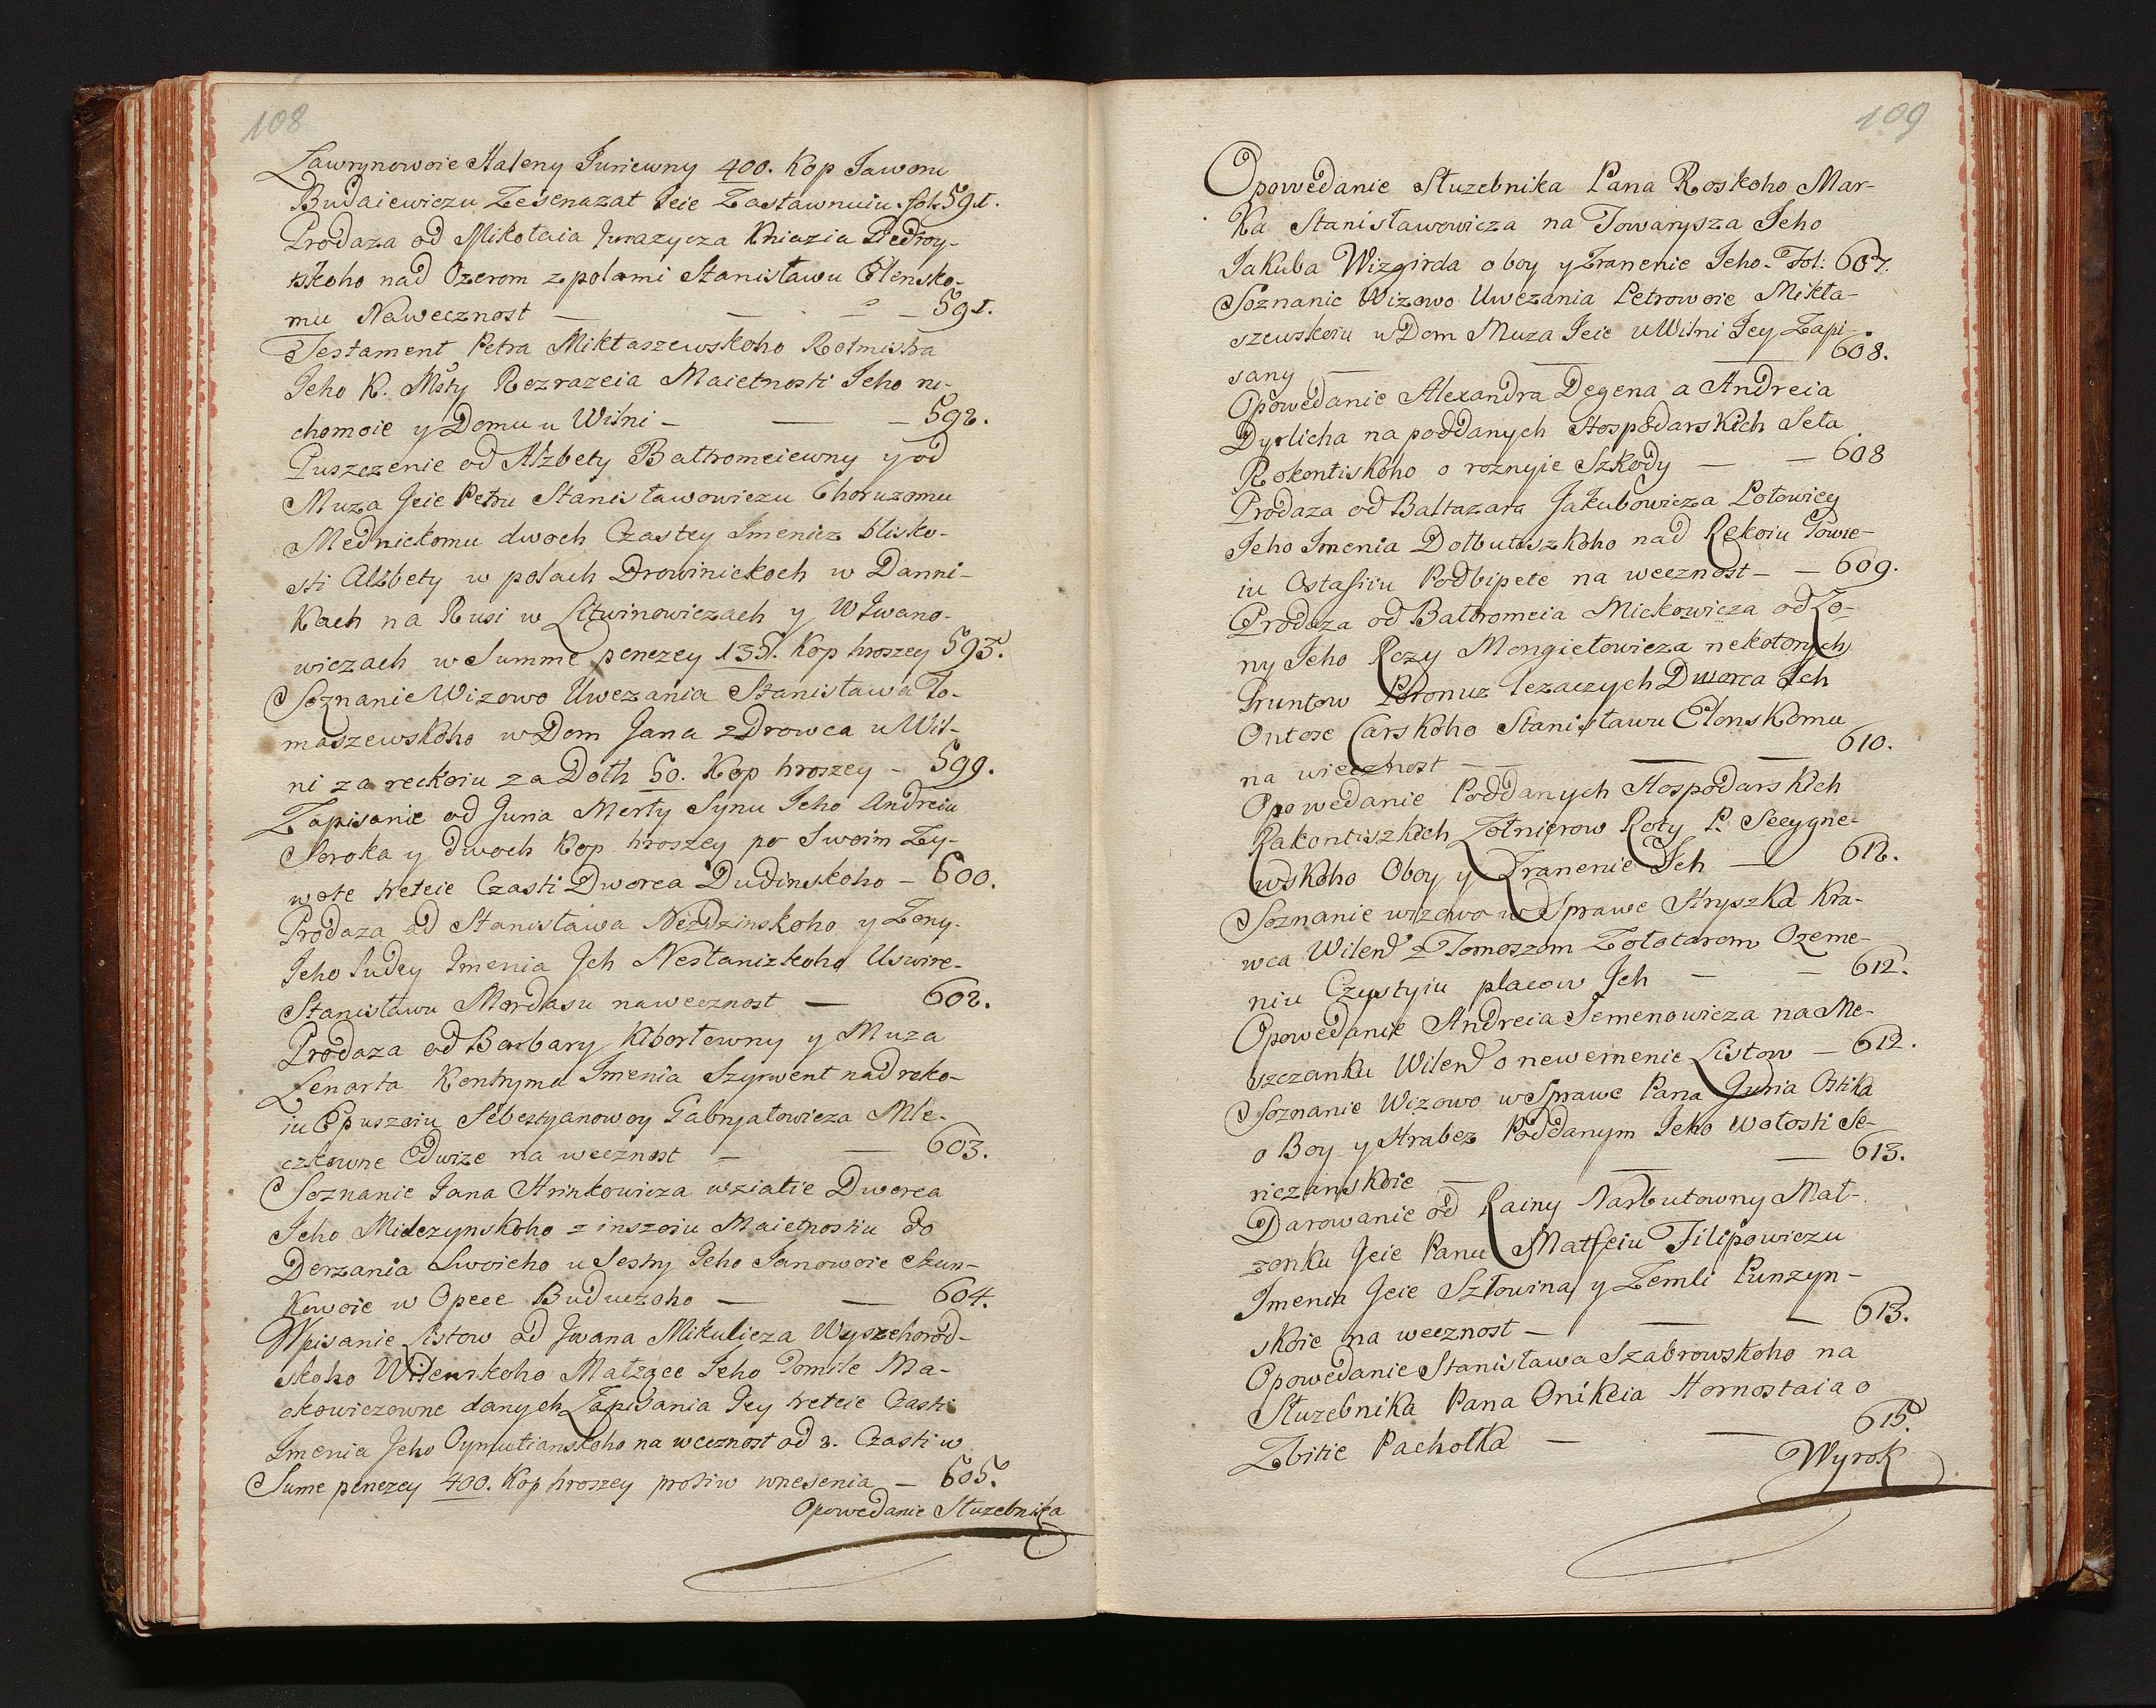 108
Ławrynowoie Haleny Juriewny 400. Kop Jawonu
Budaiewiczu Zesenazat Jeie Zastawnuiu. fol: 591.
Prodaza od Mikołaia Jurazycza Kniazia Giedroy-
tskoho nad Ozerom z polami Stanisławu Olensko-
mu Nawecznost — — - - 591.
Testament Petra Mikłaszewskoho Rotmistra
Jeho K. Msty Rozrazeia Maietnosti Jeho ru-
chomoie y Domu u Wilni - — - 592.
Puszczenie od Alzbety Bałtromeiewny y od
Muza Jeie Petru Stanisławowiczu Choruzomu
Mednickomu dwoch Czastey Imenicz blisko-
sti Alzbety w polach Drowinickoch w Danni-
kach na Rusi w Litwinowiczach y W Iwano-
wiczach w Summe penezey 135. Kop hroszey 593.
Soznanie Wizowo Uwezania Stanisława To-
maszewskoho w Dom Jana z Drowca u Wil-
ni za reckoiu za Dolh 60. Kop hroszey - 599.
Zapisanie od Juria Merły Synu Jeho Andreiu
Soroka y dwoch Kop hroszey po Swoim Zy-
wote treteie Czasti Dworca Dudinskoho - 600.
Prodaza od Stanisława Niezdzinskoho y Zony
Jeho ludey Imenia Jch Nestanizkoho Uswire-
Stanisławu Mordasu nawecznost — 602.
Prodaza od Barbary Kibortewny y Muza
Lenarta Kontryma Imenia Szyrwent nad reko-
iu Opuszoiu Sebestyanowoy Gabryałowicza Mle-
czkowne Edwize na wecznost - — 603.
Soznanie Jana Hrinkowicza wziatie Dworca
Jeho Midczynskoho z inszoiu Maietnostiu do
Derzania Swoieho u Sestry Jeho Janowoie Skun-
kowoie w Opece Buduczoho — — 604.
Wpisanie Listow od Jwana Mikulicza Wyszehorod-
skoho Wilenskoho Małzące Jeho Tomile Ma-
ckowiczowne danych Zapisania Jey treteie Czasti
Imenia Jeho Oymutianskoho na wecznost od 3. Czasti w
Sume penezey 400. Kop hroszey protiw wnesenia - 605.
Opowedanie Słuzebnika
109
Opowedanie Słuzebnika Pana Roskoho Mar-
ka Stanisławowicza na Towarysza Jeho
Jakuba Wizgirda o boy y Zranenie Jeho - Fol: 607.
Soznanie Wizowo Uwezania Petrowoie Mikła-
szewskoiu w Dom Muza Jeie u Wilni Jey Zapi-
sany — — — 608.
Opowedanie Alexandra Degena a Andreia
Dyrlicha na poddanych Hospodarskich Seła
Rokontiskoho o roznyie Szkody — — 608
Prodaza od Baltazara Jakubowicza Połowicy
Jeho Imenia Dołbutiszkoho nad Rekoiu Powie-
iu Ostafiiu Podbipete na wecznost - - 609.
Prodaza od Bałtromeia Mickowicza od Zo-
ny Jeho Rozy Mongiełowicza nekotorych
Gruntow Poronuz lezaczych Dworca Jch
Ontose Carskoho Stanisławu Olonskomu
na wiecznost - — — 610.
Opowedanie Poddanych Hospodarskich
Rakontiszkich Zołnierow Roty P. Secygne-
wskoho Oboy y Zranenie Jch — 612.
Soznanie wizowo w Sprawe Hryszka Kra-
wca Wilend z Tomoszom Zołotarom Ozeme-
niu Czystyiu placow Jch - - 612.
Opowedanie Andreia Semenowicza na Me-
szczanku Wilend o newernenie Listow - 612.
Soznanie Wizowo w Sprawe Pana Juria Ostika
o Boy y Hrabez Poddanym Jeho Wołosti Se-
riczanskoie — — — 613.
Darowanie od Rainy Narbutowny Mał-
zonku Jeie Panu Matfeiu Filipowiczu
Imenia Jeie Szłowina y Zemli Punzyn-
skoie na wecznost - — — 613.
Opowedanie Stanisława Szabrowskoho na
Słuzebnika Pana Onikeia Hornostaia o
Zbitie Pachołka - — 615.
Wyrok